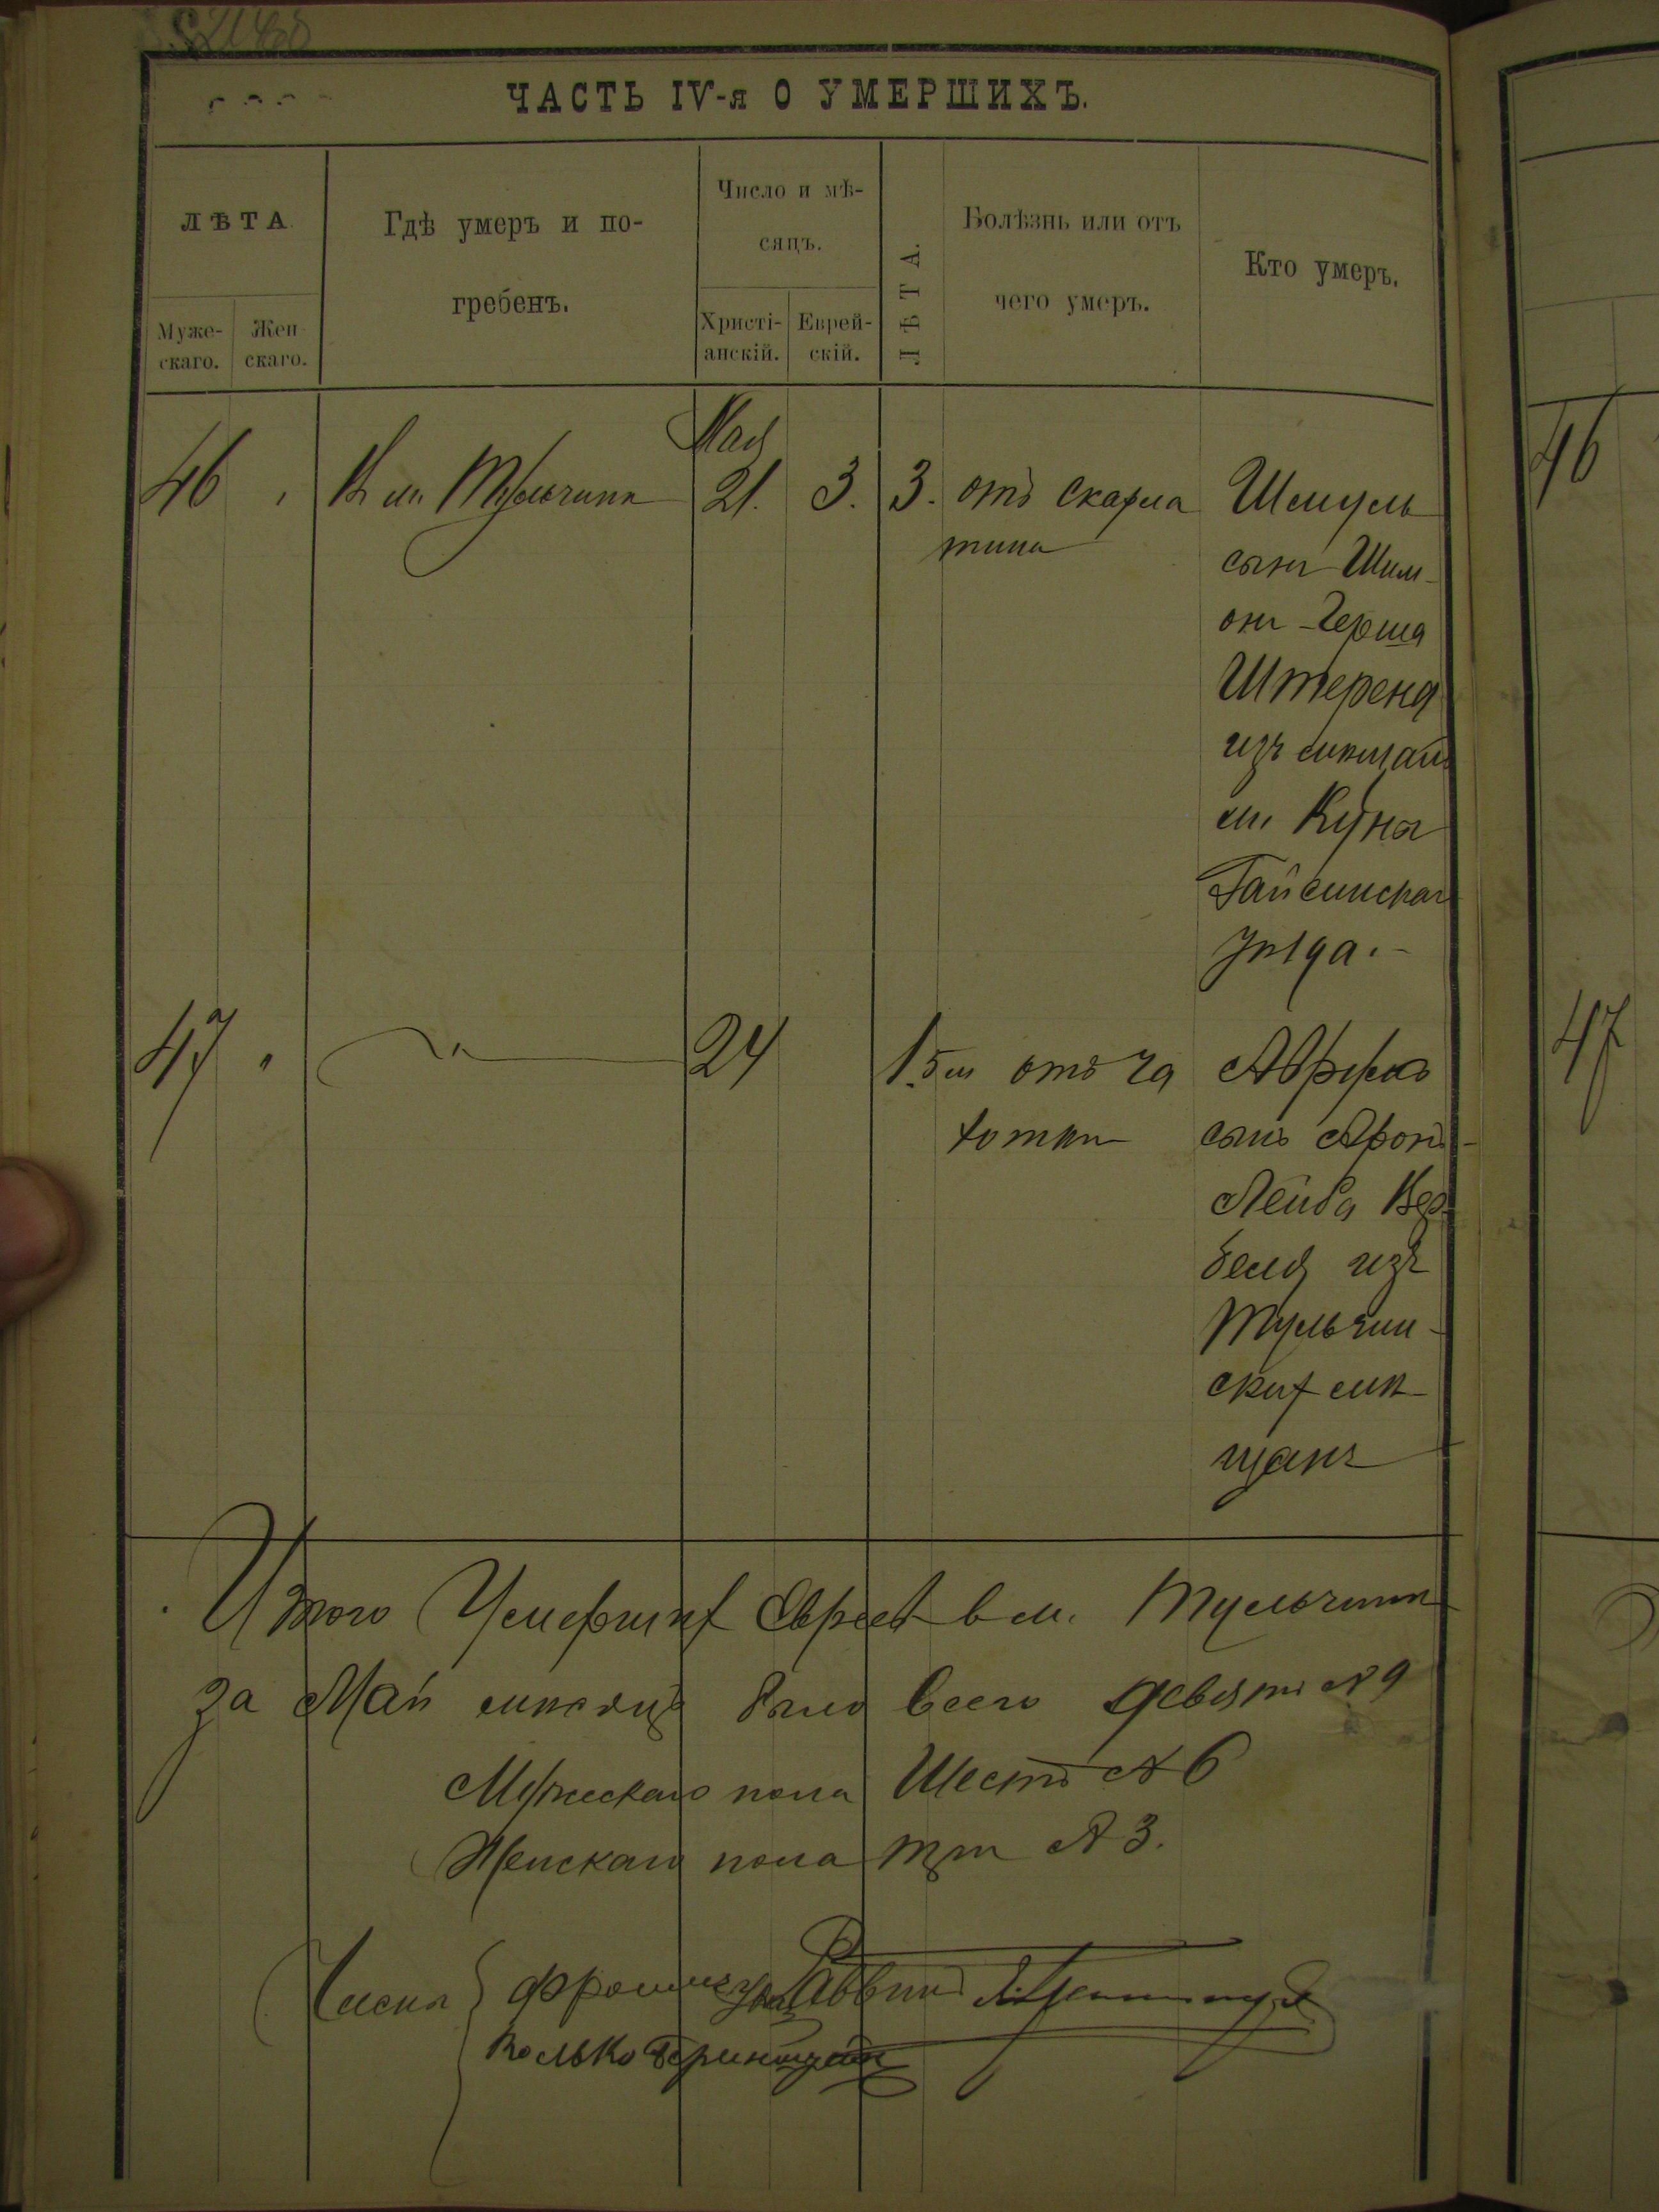 ЧАСТЬ IV-я О УМЕРШИХЪ.
ЛѢТА
Муже-
скаго.
Жен
скаго.
Гдѣ умеръ и по-
гребенъ.
Число и мѣ-
сяцъ.
Христі-
анскій.
Еврей-
скій.
ЛѢТА.
Болѣзнь или отъ
чего умеръ.
Кто умеръ.
Мая
46 " В м. Тульчинѣ 21. 3. 3. отъ скарла
тина
Шмуль
сынъ Шим-
онъ-Герша
Штерена
изъ мѣщанъ
м. Куна
Гайсинскаго
уѣзда.-
47 " " 24 1.5м отъ ча
хотки
сынъ Аронъ-
Лейба Вер-
беля изъ
Тульчин-
скихъ мѣ-
щанъ
Итого Умершихъ Евреевъ в м. Тульчинѣ
за Май мѣсяцъ было всего девять № 9
Мужескаго пола Шесть № 6
Женскаго пола три № 3.
Раввинъ
Волько
46
47